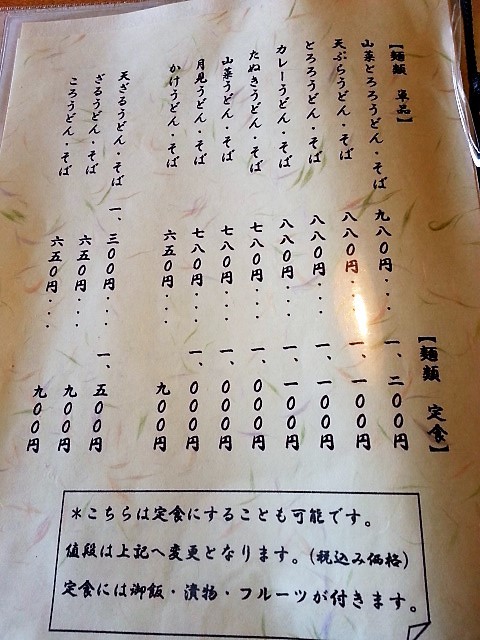 【麺類 単品】 【麺類 定食】
山菜とろろうどん・そば 九八〇円・・・ 一、二〇〇円
天ぷらうどん・そば 八八〇円・・・ 一、一〇〇円
とろろうどん・そば 八八〇円・・・ 一、一〇〇円
カレーうどん・そば 八八〇円・・・ 一、一〇〇円
たぬきうどん・そば 七八〇円・・・ 一、〇〇〇円
山菜うどん・そば 七八〇円・・・ 一、〇〇〇円
月見うどん・そば 七八〇円・・・ 一、〇〇〇円
かけうどん・そば 六五〇円・・・ 九〇〇円
天ざるうどん・そば 一、三〇〇円・・・ 一、五〇〇円
ざるうどん・そば 六五〇円・・・ 九〇〇円
ころうどん・そば 六五〇円・・・ 九〇〇円
＊こちらは定食にすることも可能です。
値段は上記へ変更となります。（税込み価格）
定食には御飯・漬物・フルーツが付きます。